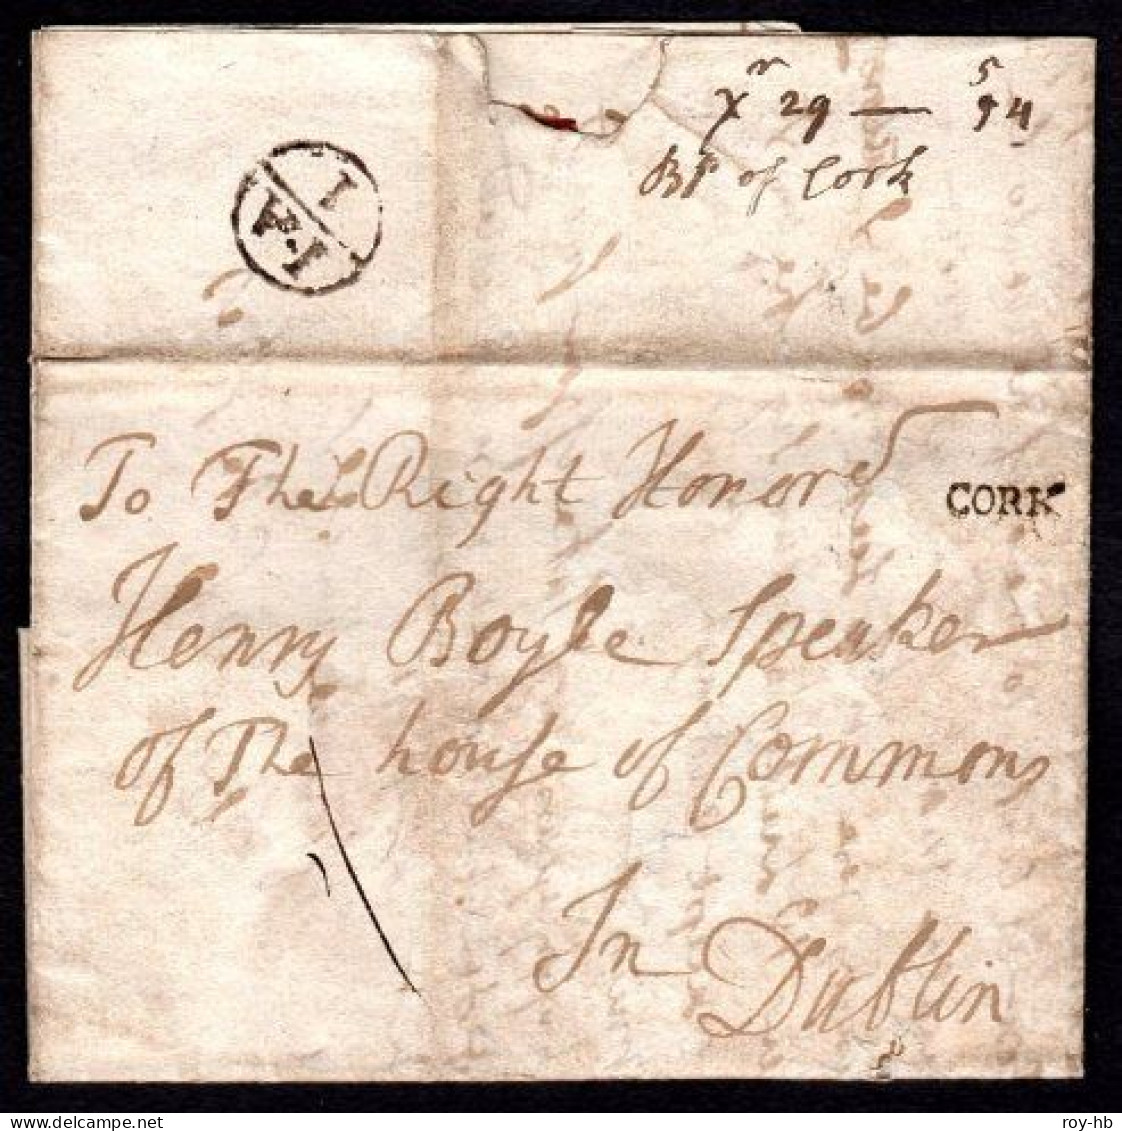 Xr 29 — 54
BP of Cork
1
IA
To The Right Honord
CORK
Henry Boyle Speaker
of The house of Commons
In
Dublin
roy-hb